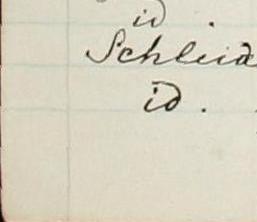 id .
Schleid
id .